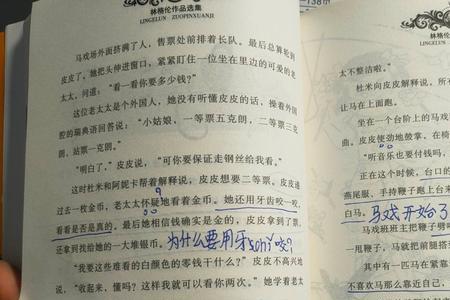 林格伦作品选集
LINGELUN ZUOPINXUANJI
马戏场外面挤满了人，售票处前排着长队。最后总算轮到
皮皮了，她把头伸进窗口，紧紧盯住一位坐在里边的可爱的老
太太，问道：“看一看你要多少钱？”
这位老太太是个外国人，她没有听懂皮皮的话，操着外国
腔的瑞典语回答说：“小姑娘，一等票五克朗，二等票三克
朗，站票一克朗。”
“明白了，”皮皮说，“可你要保证走钢丝给我看。”
这时杜米和阿妮卡帮着解释说，皮皮想要二等票。皮皮递
过去一枚金币，老太太怀疑地看着金币。她还用牙齿咬一咬，
看看是否是真的。最后她相信钱确实是金的，皮皮拿到了票，
还拿到找给她的一大堆银币。
为什么要用牙 咬？
“我要这些难看的白颜色的零钱干什么？”皮皮不高兴地
说，“收起来，懂吗？这样我就可以看你两次。”她学着老太
林格伦作品选集
LINGELUN ZUOPINXUANJI
太不整洁啦。”
杜米向皮皮解释说，所
让马在上面跑。
坐在一个台阶上的马戏
皮皮使劲地鼓掌，在椅
“听音乐也要付钱吗，
正在这个时候，台口的
燕尾服、手持鞭子跑上台来
白马。
马戏开始了
马戏班班主把鞭子劈
一甩鞭子，马就把前腿搭
其中有一匹马在紧靠
不喜欢马那么靠近自己，